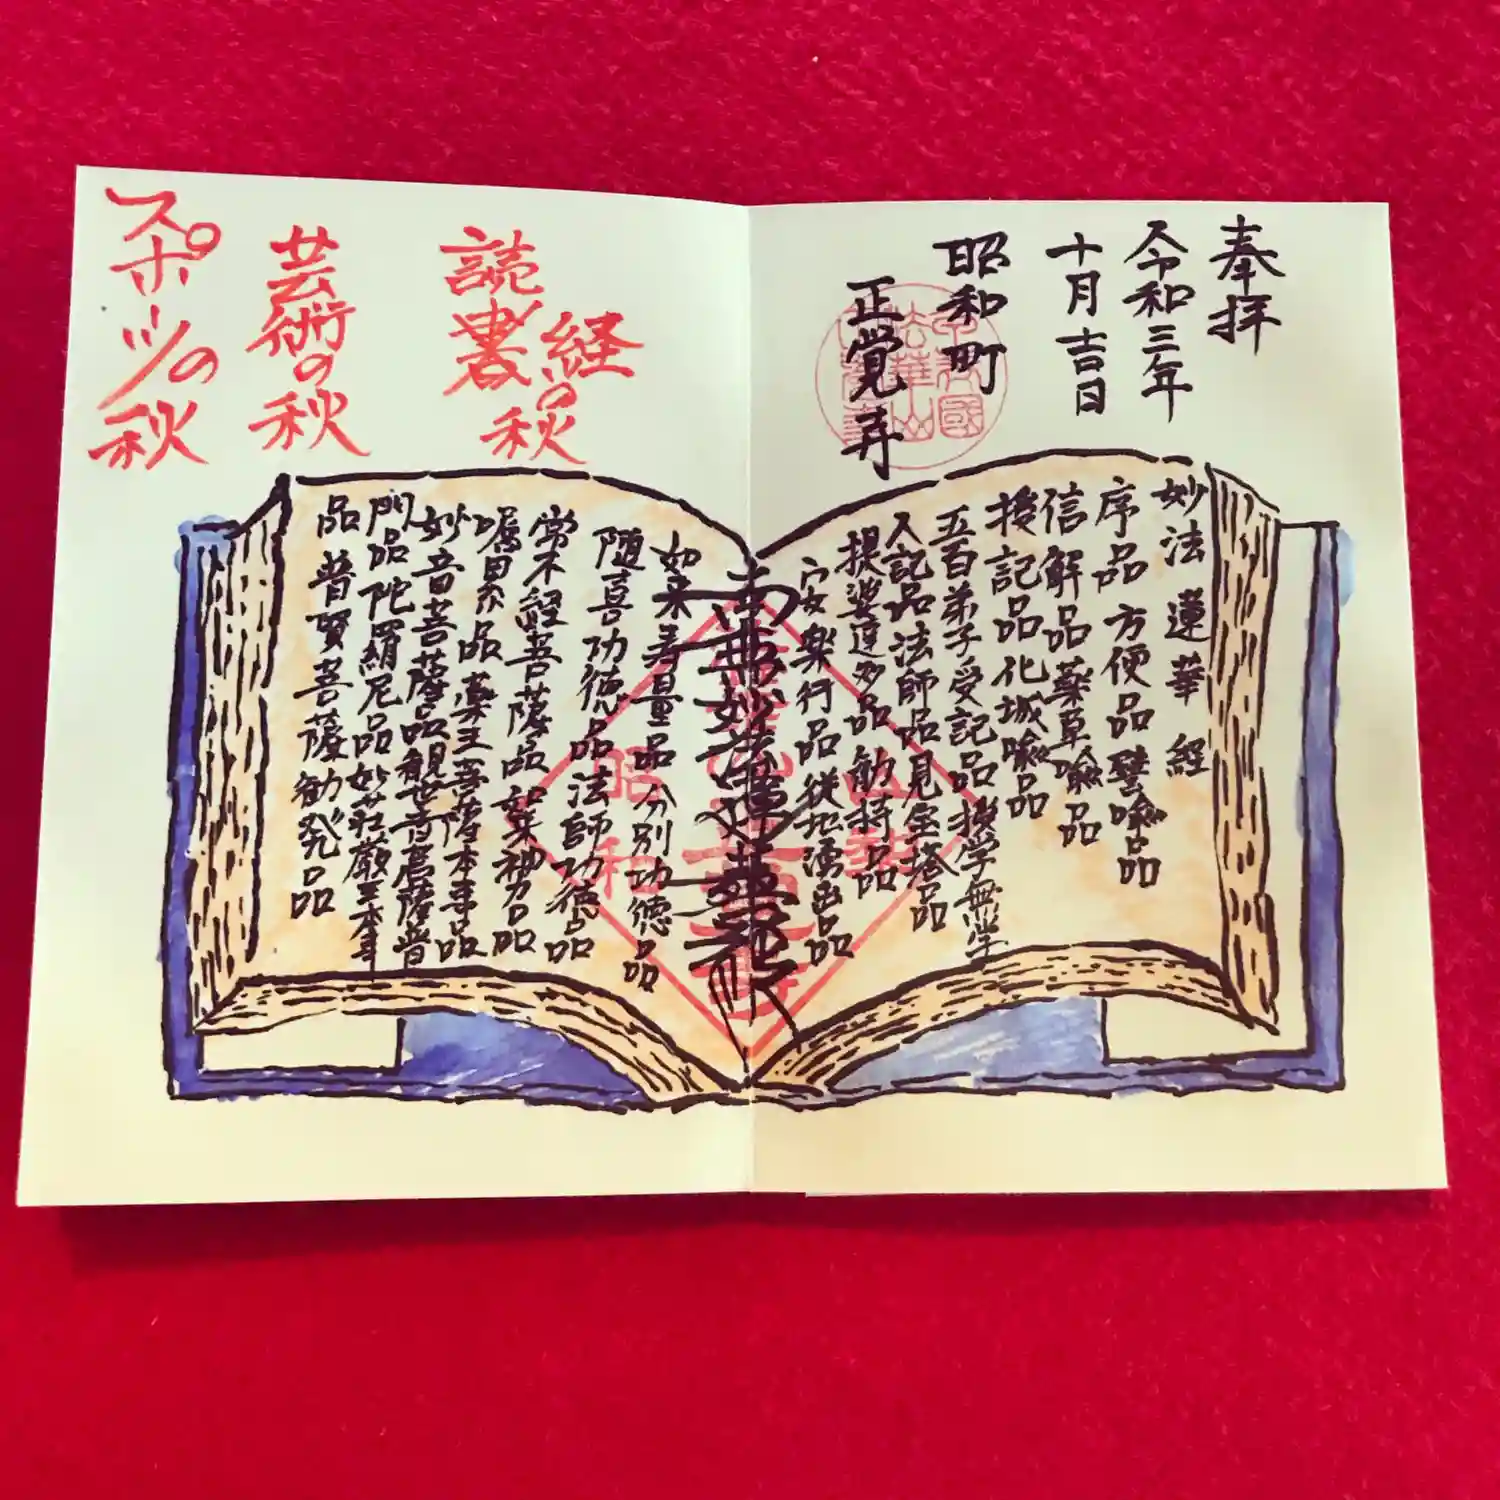 奉拝
令和三年
十月吉日
昭和町
正覚寺
読書
経の
秋
芸術の秋
スポーツの秋
妙法蓮華経
序品方便品譬喩品
信解品薬草喩品
授記品化城喩品
五百弟子受記品授学無学
人記品法師品見宝塔品
提婆達多品勧持品
安楽行品従地湧出品
南無妙法蓮華経
如来寿量品分別功徳品
随喜功徳品法師功徳品
常不軽菩薩品如来神力品
嘱累品薬王菩薩本事品
妙音菩薩品観世音菩薩普
門品陀羅尼品妙荘厳王本事
品普賢菩薩勧発品
昭和